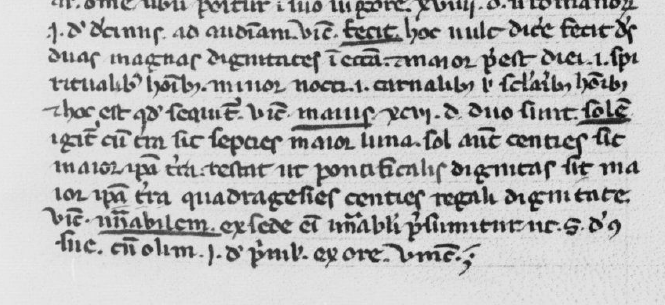 dñe nichil ponitur i suo uigore. xviiii. d. si romanoꝝ
.i. d' dcinus. ad audiam. vic̄. fecit. hoc uult dicē fecit ds̄
duas magnas dignitates i ecc̄a. maior p̄est diei .i. spi
ritualibꝫ hoı̄bꝫ. minor nocti .i. carnalibꝫ ł scları̄bꝫ hoı̄bꝫ
⁊ hoc est qd' sequit̄. vic̄. maius. xcvi. d. duo sunt. solē
igit̄ cū tra sit septies maior luna. sol aut̄ centies sit
maior ipa t̄ra. restat ut pontificalis dignitas sit ma
ior ipa t̄ra quadragesies centies regali dignitate.
vic̄. uñabilem. ex sede ei uñabli p̄sumitur ut. s. d' ꝯ
sue. cū olim .i. d' p̄uil. ex ore. vinc̄.